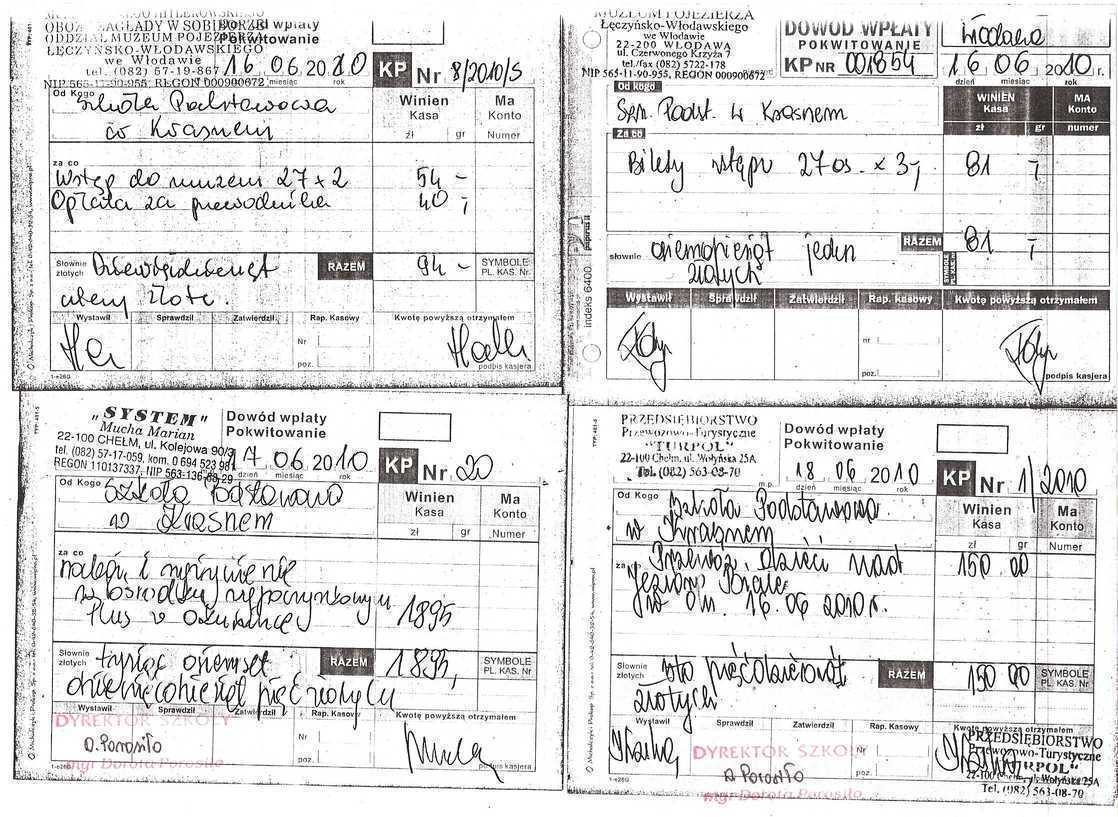 OBOZU ZAGŁADY W SOBIBORZE
ODDZIAŁ MUZEUM POJEZIERZA
ŁĘCZYŃSKO-WŁODAWSKIEGO
we Włodawie
tel. (082) 57-19-867
NIP 565-11-90-955, REGON 000900672
Dowód wpłaty
Pokwitowanie
16 06 2010
miesiąc rok
KP Nr 8/2010/S
Od Kogo Szkoła Podstawowa
w Krasnem
Winien Kasa
Ma Konto
zł gr Numer
za co
Wstęp do muzeum 27 x 2 54 -
Opłata za przewodnika 40,-
Słownie złotych Dziewięćdziesiąt
cztery złote.
RAZEM 94 -
SYMBOLE PL. KAS. Nr
Wystawił Sprawdził Zatwierdził Rap. Kasowy Kwotę powyższą otrzymałem
Nr
poz.
podpis kasjera
MUZEUM POJEZIERZA
Łęczyńsko-Włodawskiego
we Włodawie
22-200 WŁODAWA
ul. Czerwonego Krzyża 7
tel./fax (082) 5722-178
NIP 565-11-90-955, REGON 000900672
DOWÓD WPŁATY
POKWITOWANIE
KP NR 001854
Włodawa
16 06 2010 r.
dzień miesiąc rok
Od kogo
Szk. Podst. w Krasnem
WINIEN Kasa
MA Konto
zł gr numer
Za co
Bilety wstępu 27 os. x 3,- 81 ,-
RAZEM 81 ,-
słownie osiemdziesiąt jeden
złotych
Wystawił Sprawdził Zatwierdził Rap. kasowy Kwotę powyższą otrzymałem
nr
poz.
podpis kasjera
indeks 6400
„SYSTEM"
Mucha Marian
22-100 CHEŁM, ul. Kolejowa 90/3
tel. (082) 57-17-059, kom. 0 694 523 981
REGON 110137337, NIP 563-136-08-29
Dowód wpłaty
Pokwitowanie
17 06 2010
dzień miesiąc rok
KP Nr 20
Od Kogo Szkoła Podstawowa
w Krasnem
Winien Kasa
Ma Konto
zł gr Numer
za co
nocleg i wyżywienie
w ośrodku wypoczynkowym
Plus w Okunince 1895
Słownie złotych tysiąc osiemset
dziewięćdziesiąt pięć złotych
RAZEM 1895,
SYMBOLE PL. KAS. Nr
Wystawił Sprawdził Zatwierdził Rap. Kasowy Kwotę powyższą otrzymałem
DYREKTOR SZKOŁY
D. Porosiło
mgr Dorota Porosiło
Nr
poz.
Mucha
podpis kasjera
PRZEDSIĘBIORSTWO
Przewozowo-Turystyczne
"TURPOL"
22-100 Chełm, ul. Wołyńska 25A
Tel. (082) 563-08-70
m.p.
Dowód wpłaty
Pokwitowanie
18 06 2010
dzień miesiąc rok
KP Nr 1/2010
Od Kogo Szkoła Podstawowa
w Krasnem
Winien Kasa
Ma Konto
zł gr Numer
za co Przewóz dzieci nad
Jezioro Białe
w dn. 16.06 2010 r.
150 00
Słownie złotych sto pięćdziesiąt
złotych
RAZEM 150 00
SYMBOLE PL. KAS. Nr
Wystawił Sprawdził Zatwierdził Rap. Kasowy Kwotę powyższą otrzymałem
DYREKTOR SZKOŁY
D. Porosiło
mgr Dorota Porosiło
Nr
poz.
PRZEDSIĘBIORSTWO
Przewozowo-Turystyczne
"TURPOL"
22-100 Chełm, ul. Wołyńska 25A
Tel. (082) 563-08-70